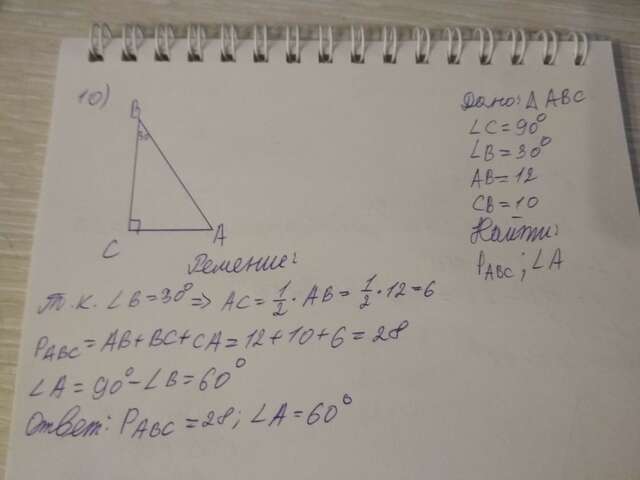 10)
B
30
C
A
Дано: Δ ABC
∠C=90°
∠B=30°
AB=12
CB=10
Найти:
P_ABC; ∠A
Решение:
Т.к. ∠B=30° ⇒ AC = 1/2 · AB = 1/2 · 12 = 6
P_ABC = AB+BC+CA = 12+10+6 = 28
∠A = 90° - ∠B = 60°
Ответ: P_ABC = 28; ∠A = 60°